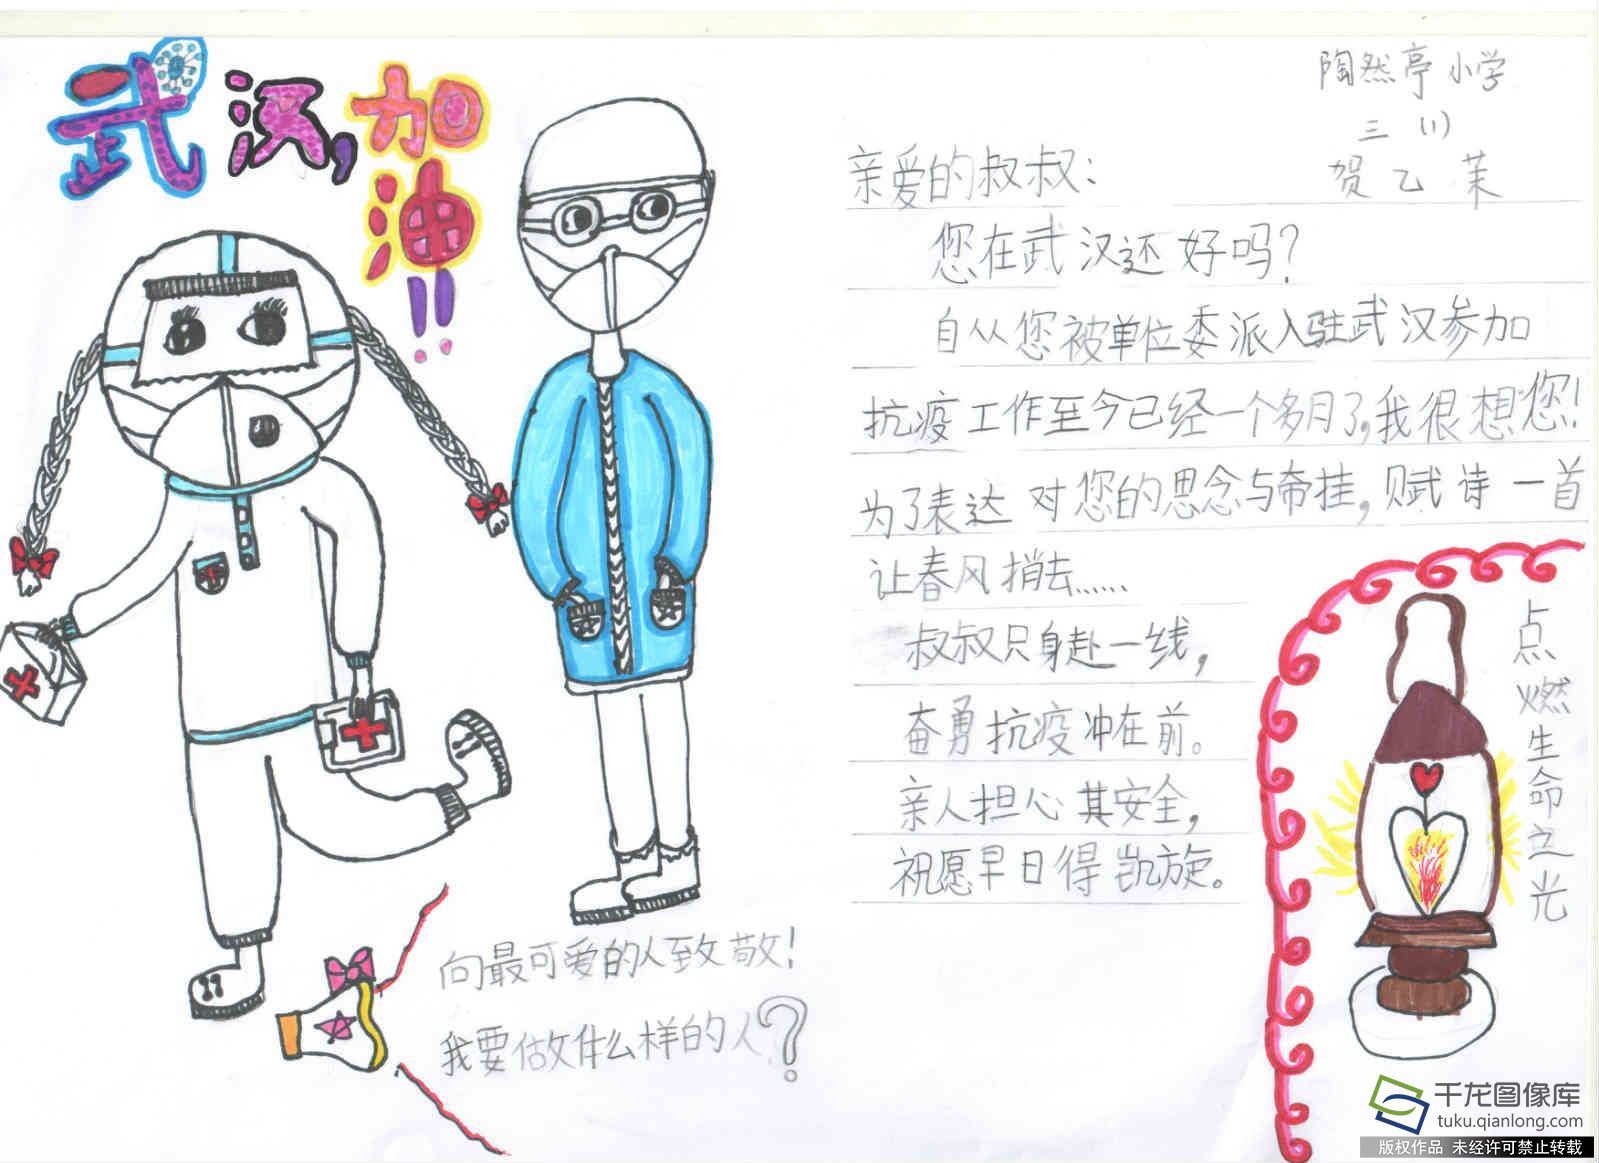 武汉,加油!!
陶然亭小学
三(1)
贺乙茉
亲爱的叔叔:
您在武汉还好吗?
自从您被单位委派入驻武汉参加
抗疫工作至今已经一个多月了,我很想您!
为了表达对您的思念与牵挂,赋诗一首
让春风捎去……
叔叔只身赴一线,
奋勇抗疫冲在前。
亲人担心其安全,
祝愿早日得凯旋。
点燃生命之光
向最可爱的人致敬!
我要做什么样的人?
千龙图像库
tuku.qianlong.com
版权作品 未经许可禁止转载